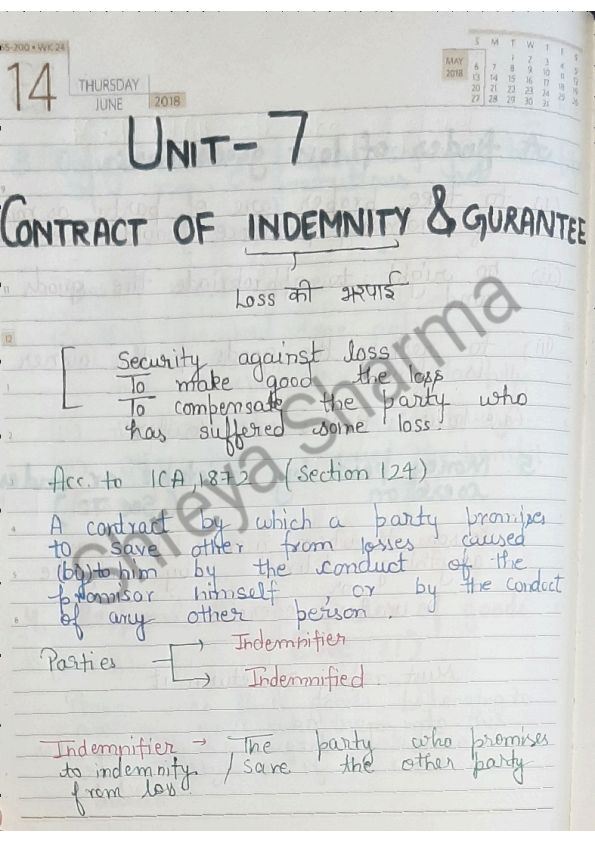 65-200 • WK 24
14
THURSDAY
JUNE 2018
MAY 2018
S M T W T F S
1 2 3 4 5
6 7 8 9 10 11 12
13 14 15 16 17 18 19
20 21 22 23 24 25 26
27 28 29 30 31
UNIT-7
CONTRACT OF INDEMNITY & GURANTEE
Loss की भरपाई
12
Security against loss
To make good the loss
To compensate the party who
has suffered some loss.
Acc. to ICA, 1872 (Section 124)
A contract by which a party promises
to save other from losses caused
(by) to him by the conduct of the
promisor himself, or by the conduct
of any other person.
Parties → Indemnifier
→ Indemnified
Indemnifier → The party who promises
to indemnity / save the other party
from loss.
Shreya Sharma